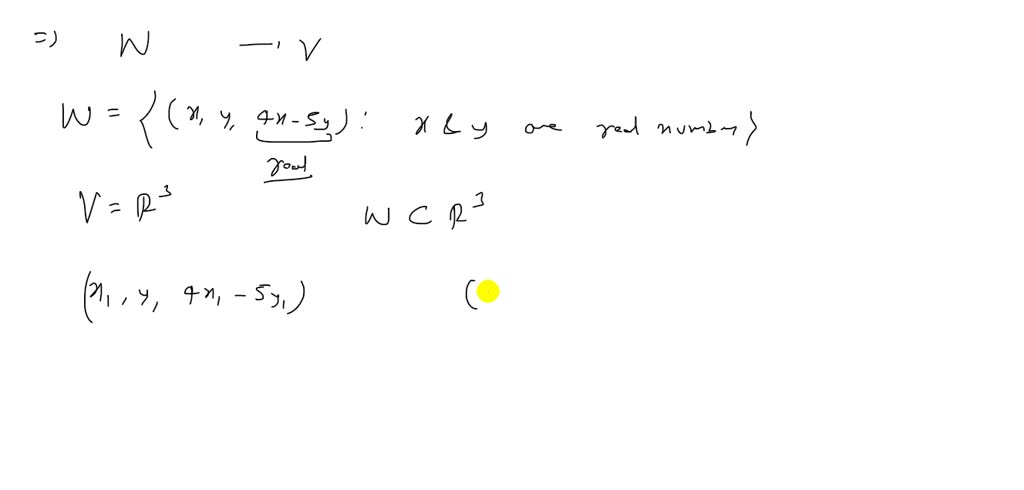 => W → V
W = { (x, y, 4x-5y) : x & y are real number }
real
V = ℝ³ W ⊂ ℝ³
(x₁, y₁ 4x₁ - 5y₁) (